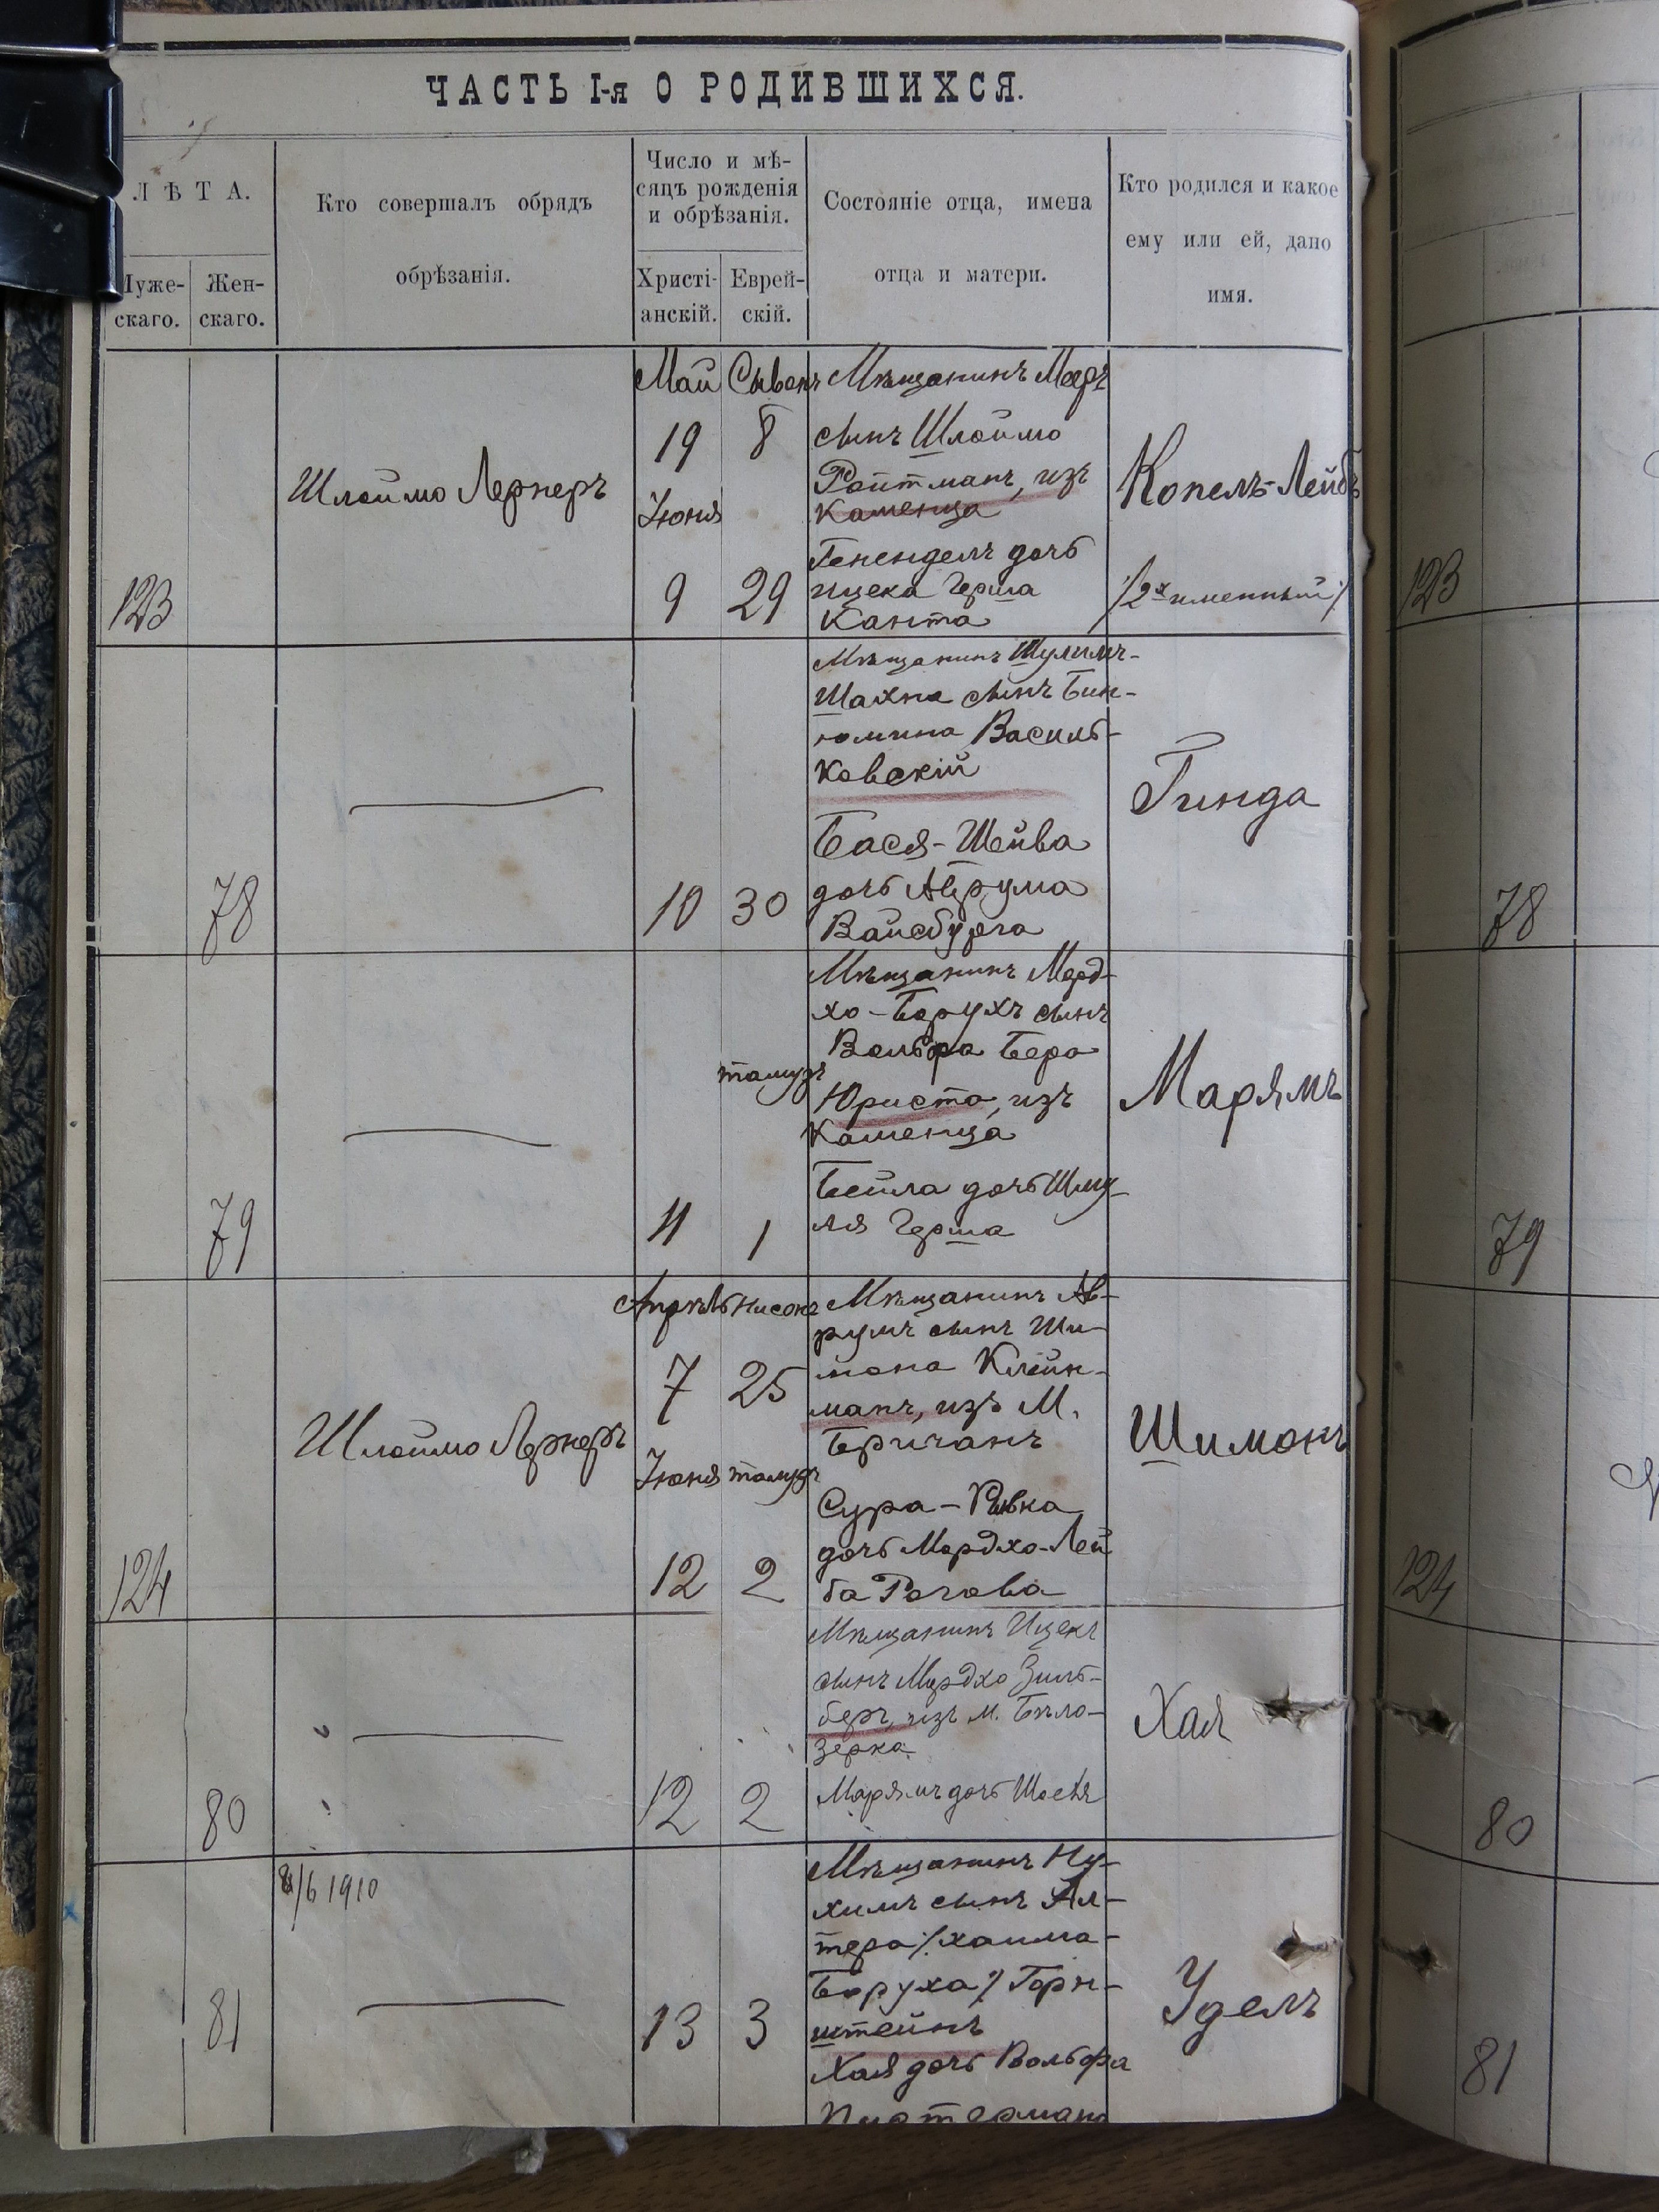 ЧАСТЬ I-я О РОДИВШИХСЯ.
ЛѢТА.
Муже-
скаго.
Жен-
скаго.
Кто совершалъ обрядъ
обрѣзанія.
Число и мѣ-
сяцъ рожденія
и обрѣзанія.
Христі-
анскій.
Еврей-
скій.
Состояніе отца, имена
отца и матери.
Кто родился и какое
ему или ей, дано
имя.
123
Шлоймо Лернеръ
Май Сыванъ
19 8
Іюня
9 29
Мѣщанинъ Меръ
сынъ Шлоймо
Ройтманъ, изъ
Каменца
Гененделъ дочь
Ицека Герша
Канта
Копелъ-Лейбъ
/2х именный/
123
78
10 30
Мѣщанинъ Шулимъ-
Шахна сынъ Бин-
юмина Василь-
ковскій
Бася-Шейва
дочь Аврума
Вайсбурга
Гинда
78
79
тамузъ
11 1
Мѣщанинъ Мерд-
хо-Борухъ сынъ
Вольфа Бера
Юриста, изъ
Каменца
Бейла дочь Шму-
ля Герша
Марямъ
79
124
Шлоймо Лернеръ
Апрѣль Нисонъ
7 25
Іюня тамузъ
12 2
Мѣщанинъ Ав-
румъ сынъ Ши-
мона Клейн-
манъ, изъ М.
Бричанъ
Сура-Ривка
дочь Мордхо-Лей
ба Рогова
Шимонъ
124
80
12 2
Мѣщанинъ Ицекъ
сынъ Мордхо Зиль-
беръ, изъ м. Бѣло-
зерка
Марямъ дочь Иосѣя
Хая
80
81
/6 1910
13 3
Мѣщанинъ Ну-
химъ сынъ Ал-
тера /Хаима-
Боруха/ Горн-
штейнъ
Хая дочь Вольфа
Удель
81